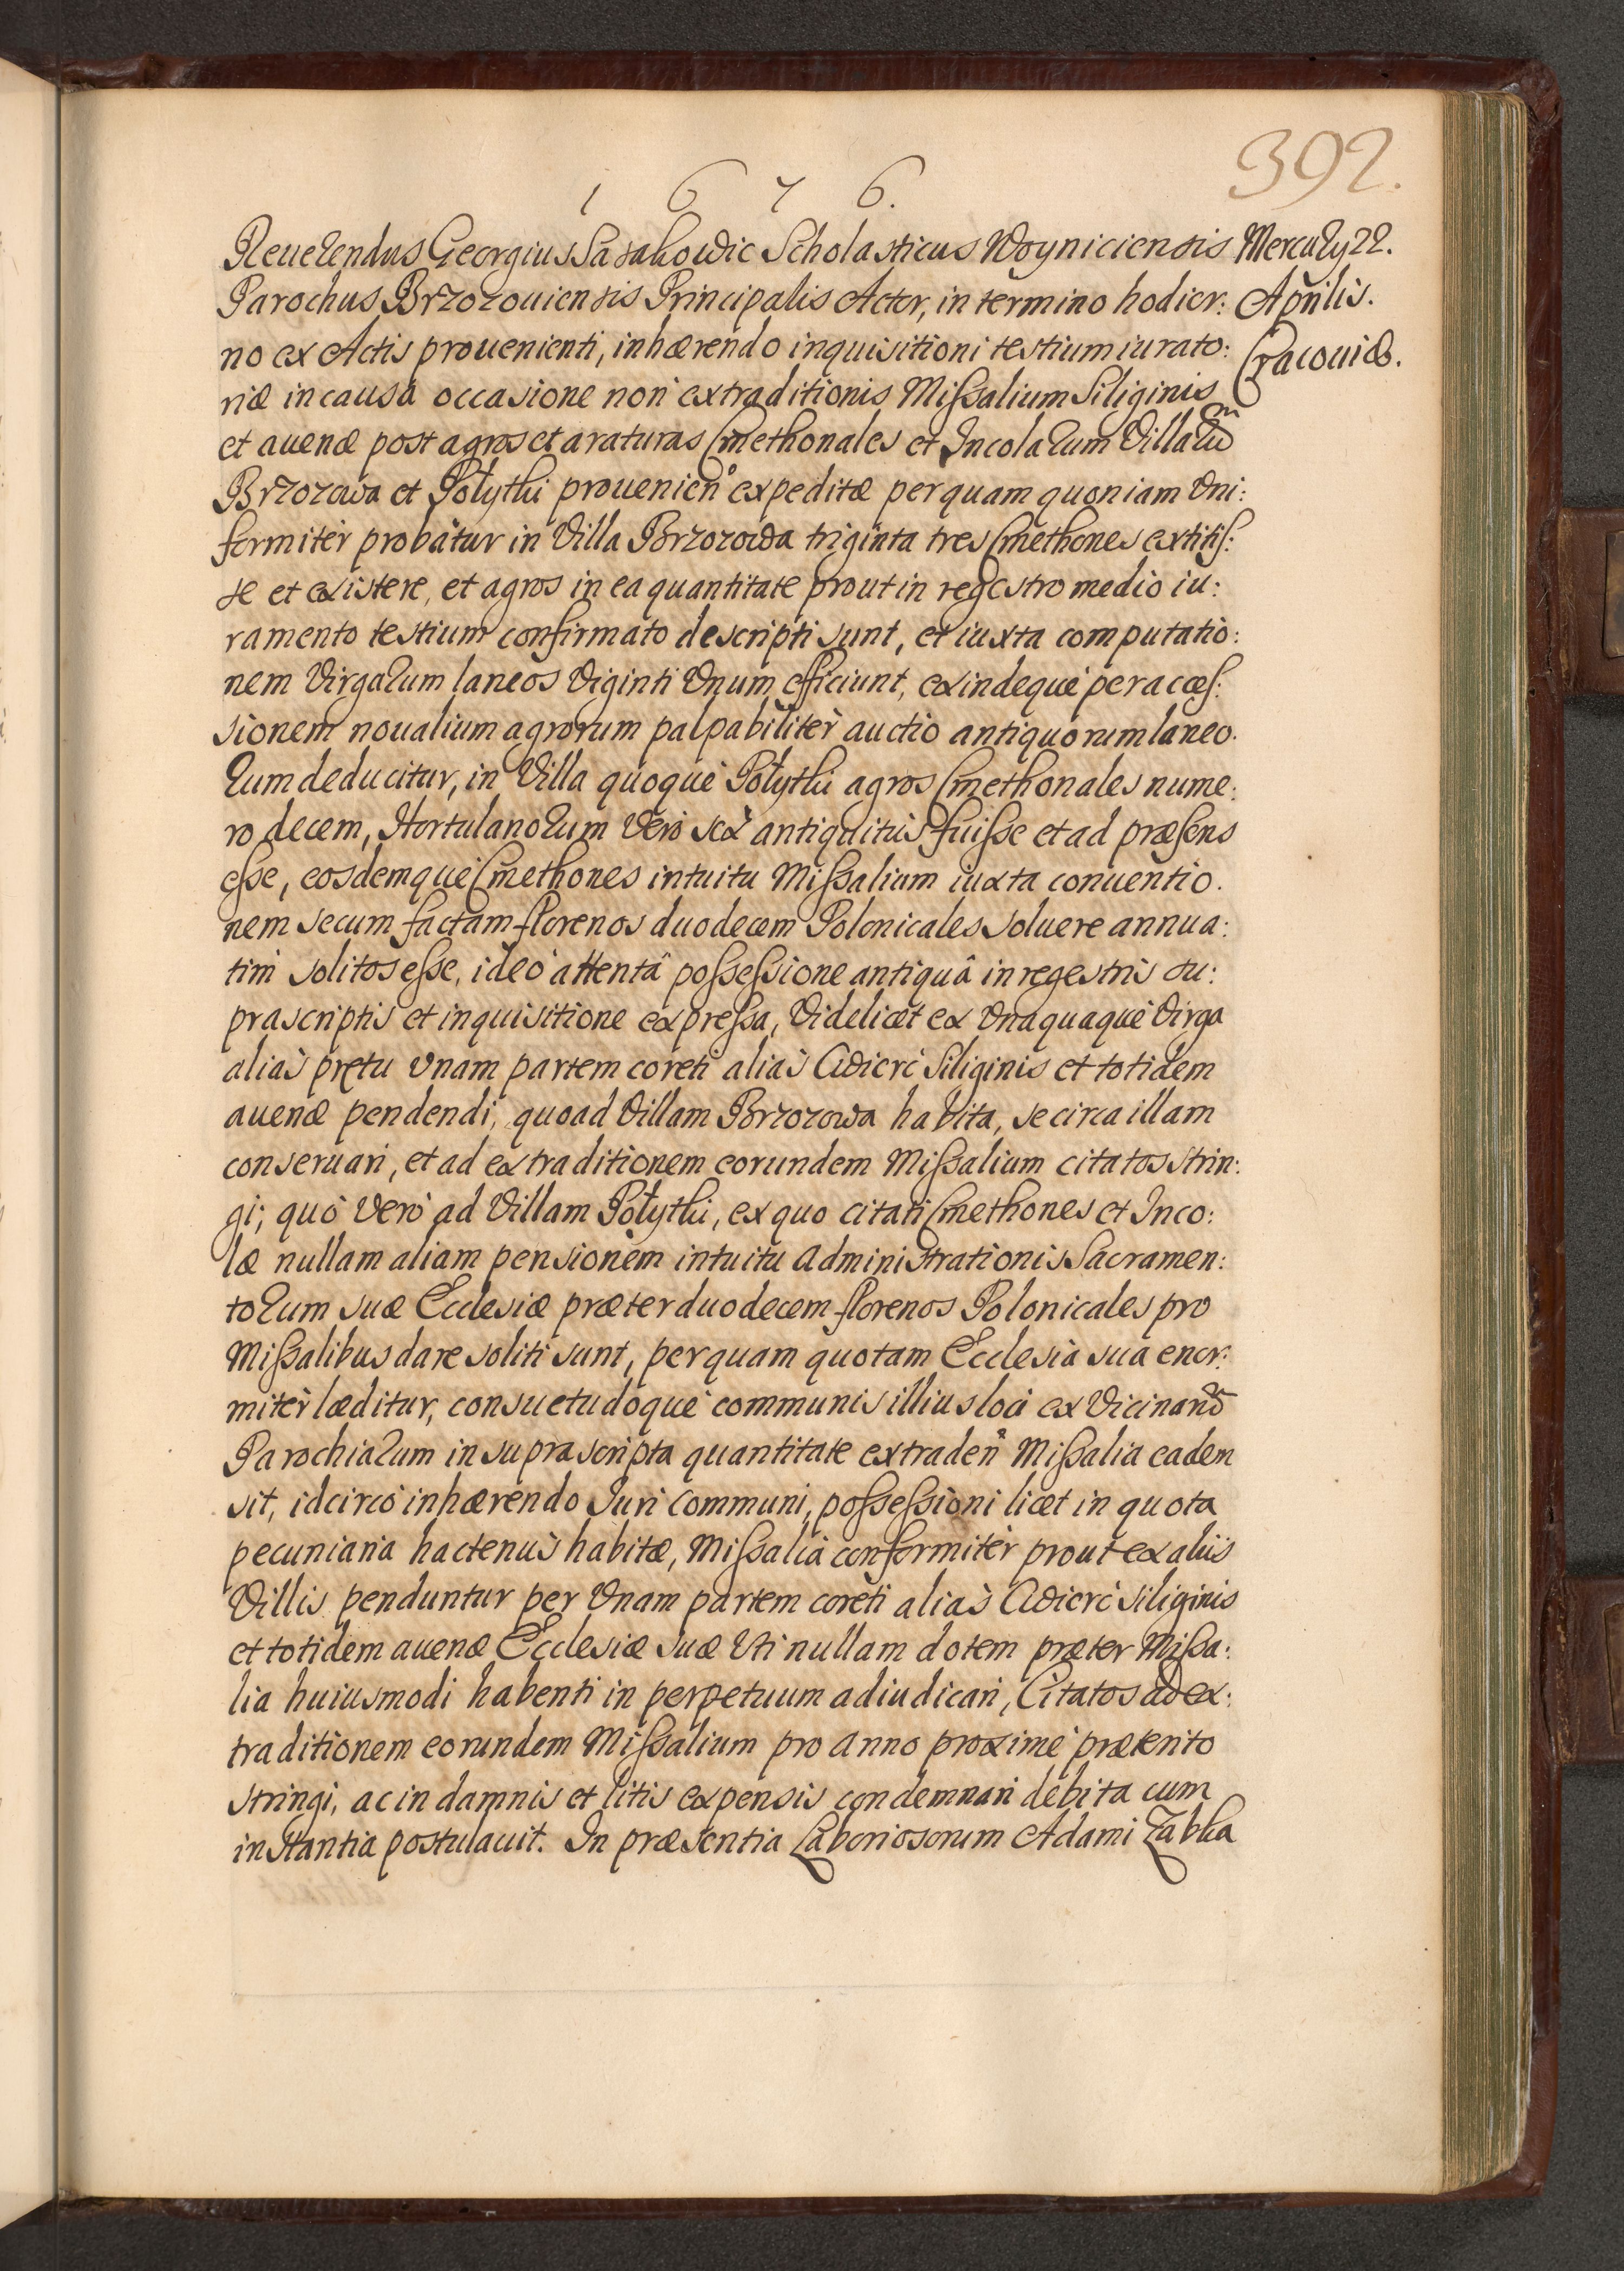 392.
1 6 7 6.
Reuerendus Georgius Sasakowic Scholasticus Woyniciensis
Mercurÿ 22.
Parochus Brzozouiensis Principalis Actor, in termino hodier:
Aprilis.
no ex Actis prouenienti, inhærendo inquisitioni testium iurato:
Cracouiæ.
riæ in causa occasione non extraditionis Missalium Siliginis
et auenæ post agros et araturas Cmethonales et Incolarum Villarũ
Brzozowa et Połythi prouenieñ expeditæ per quam quoniam Vni:
formitèr probatur in Villa Brzozowa triginta tres Cmethones extitis:
se et existere, et agros in ea quantitate prout in regestro medio iu:
ramento testium confirmato descripti sunt, et iuxta computatio:
nem Virgarum laneos Viginti Vnum efficiunt, exindequè per acces:
sionem noualium agrorum palpabilitèr auctio antiquorum laneo.
rum deducitur, in Villa quoquè Połythi agros Cmethonales nume:
ro decem, Hortulanorum Verò sex antiquitùs fuisse et ad præsens
esse, eosdemquè Cmethones intuitu Missalium iuxta conuentio.
nem secum factam florenos duodecem Polonicales soluere annua:
tim solitos esse, ideò attentâ possessione antiquâ in regestris su:
prascriptis et inquisitione expressa, Videlicèt ex Vnaquaquè Virga
aliàs prętu vnam partem coreti aliàs Cwierć Siliginis et totidem
auenæ pendendi, quoad Villam Brzozowa habita, se circa illam
conseruari, et ad extraditionem eorundem Missalium citatos strin:
gi; quò Verò ad Villam Połythi, ex quo citati Cmethones et Inco:
læ nullam aliam pensionem intuitu administrationis Sacramen:
torum suæ Ecclesiæ præter duodecem florenos Polonicales pro
Missalibus dare soliti sunt, per quam quotam Ecclesia sua enor:
mitèr læditur, consuetudoquè communis illius loci ex Vicinarũ
Parochiarum in suprascripta quantitate extradeñ Missalia eadem
sit, idcircò inhærendo Iuri communi, possessioni licèt in quota
pecuniaria hactenùs habitæ, Missalia conformitèr prout ex aliis
Villis penduntur per Vnam partem coreti aliàs Cwierć siliginis
et totidem auenæ Ecclesiæ suæ Vti nullam dotem præter Missa:
lia huiusmodi habenti in perpetuum adiudicari, Citatos ad ex:
traditionem eorundem Missalium pro anno proximè præterito
stringi, ac in damnis et litis expensis condemnari debita cum
instantia postulauit. In præsentia Laboriosorum Adami Zabka